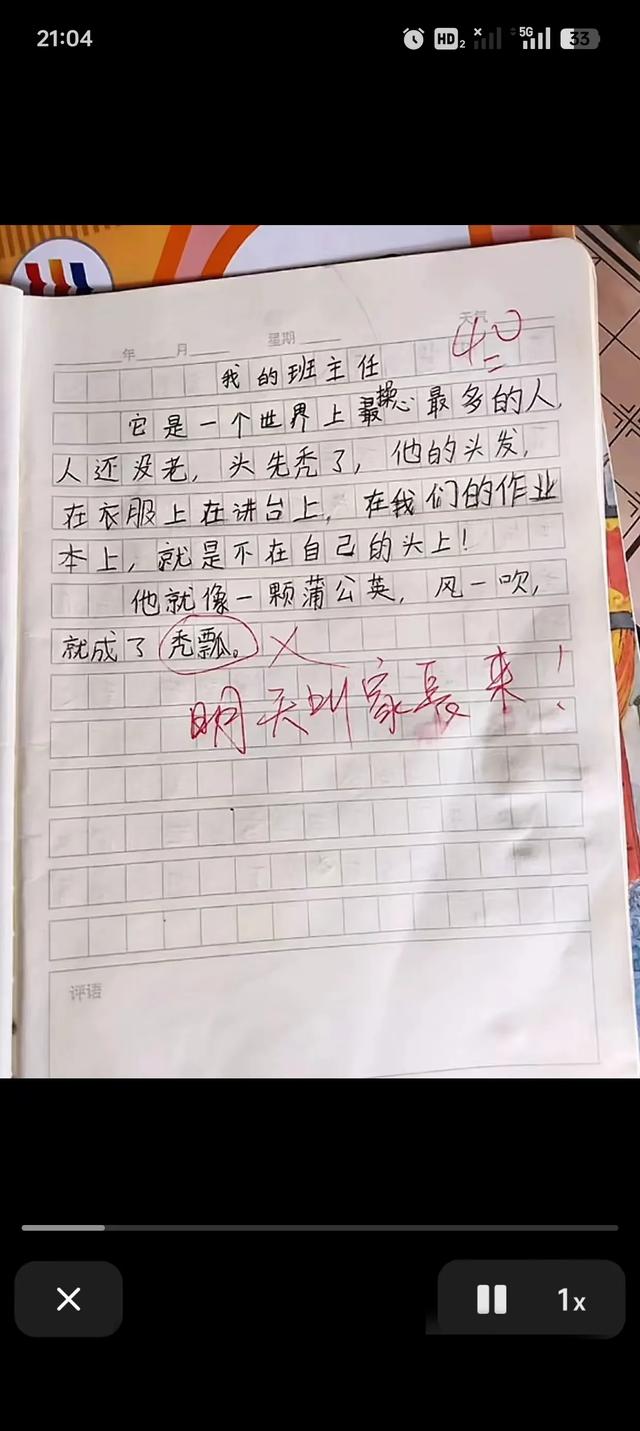 21:04
HD2
5G
33
年 月 星期 天气
40
我的班主任
它是一个世界上最操心最多的人,
人还没老,头先秃了,他的头发,
在衣服上在讲台上,在我们的作业
本上,就是不在自己的头上!
他就像一颗蒲公英,风一吹,
就成了秃瓢。
明天叫家长来!
评语
1x